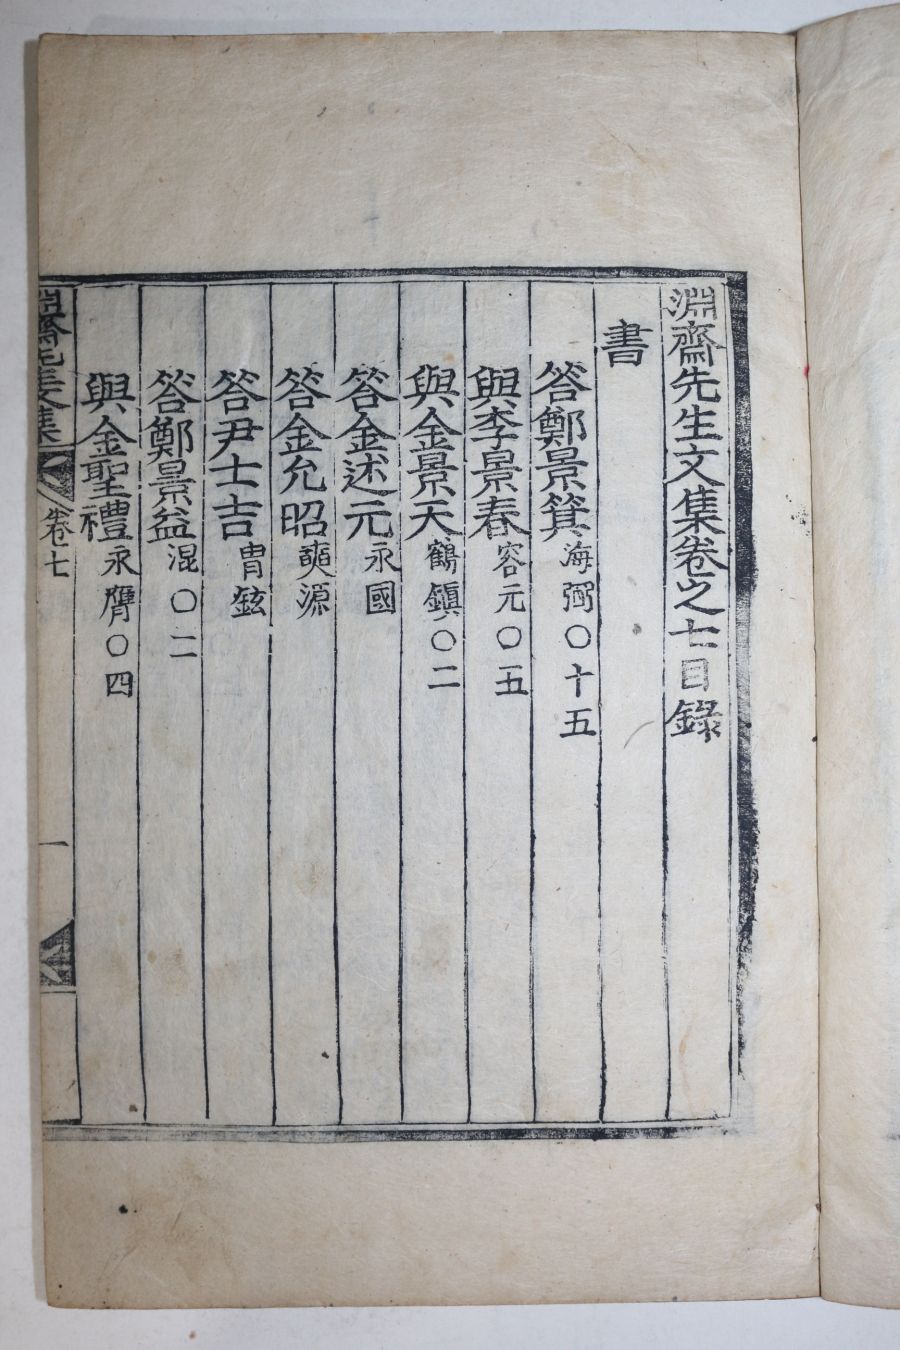 淵齋先生文集卷之七目錄
書
答鄭景箕 海弼○十五
與李景春 容元○五
與金景天 鶴鎭○二
答金述元 永國
答金允昭 奭源
答尹士吉 胄鉉
答鄭景益 混○二
與金聖禮 永膺○四
淵齋先生文集 卷七 一